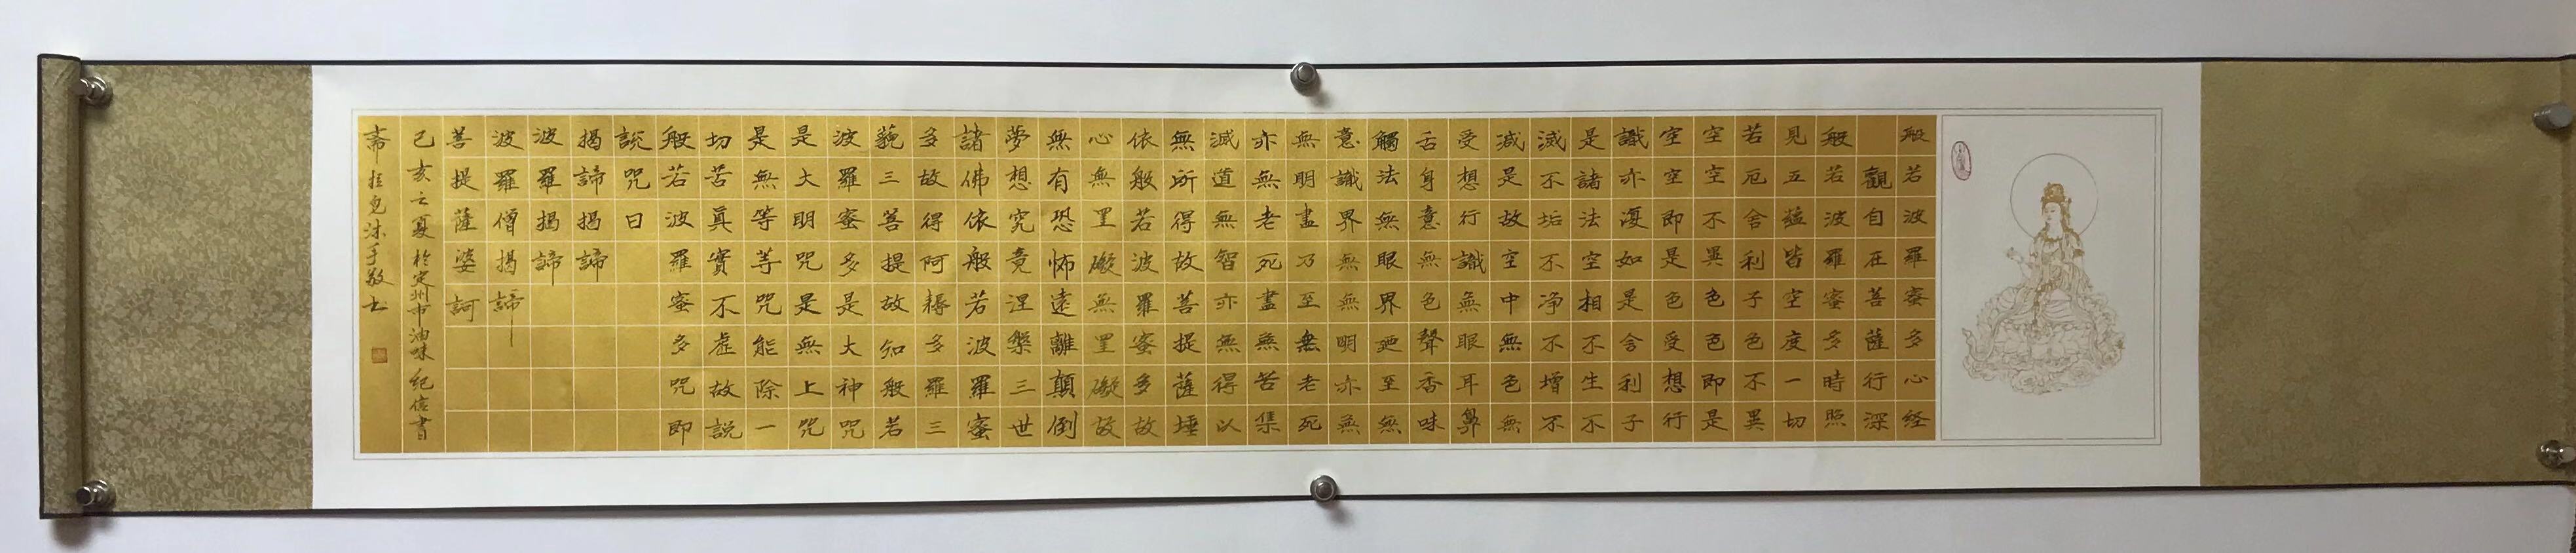 般若波羅蜜多心经
觀自在菩薩行深
般若波羅蜜多時照
見五蘊皆空度一切
若厄舍利子色不異
空空不異色色即是
空空即是色受想行
識亦復如是舍利子
是諸法空相不生不
滅不垢不净不增不
減是故空中無色無
受想行識無眼耳鼻
舌身意無色聲香味
觸法無眼界廼至無
意識界無無明亦無
無明盡乃至無老死
亦無老死盡無苦集
滅道無智亦無得以
無所得故菩提薩埵
依般若波羅蜜多故
心無罣礙無罣礙故
無有恐怖遠離顛倒
夢想究竟涅槃三世
諸佛依般若波羅蜜
多故得阿耨多羅三
藐三菩提故知般若
波羅蜜多是大神咒
是大明咒是無上咒
是無等等咒能除一
切苦真實不虛故説
般若波羅蜜多咒即
説咒曰
揭諦揭諦
波羅揭諦
波羅僧揭諦
菩提薩婆訶
己亥之夏於定州市油味紀信書
斋 沐手敬书